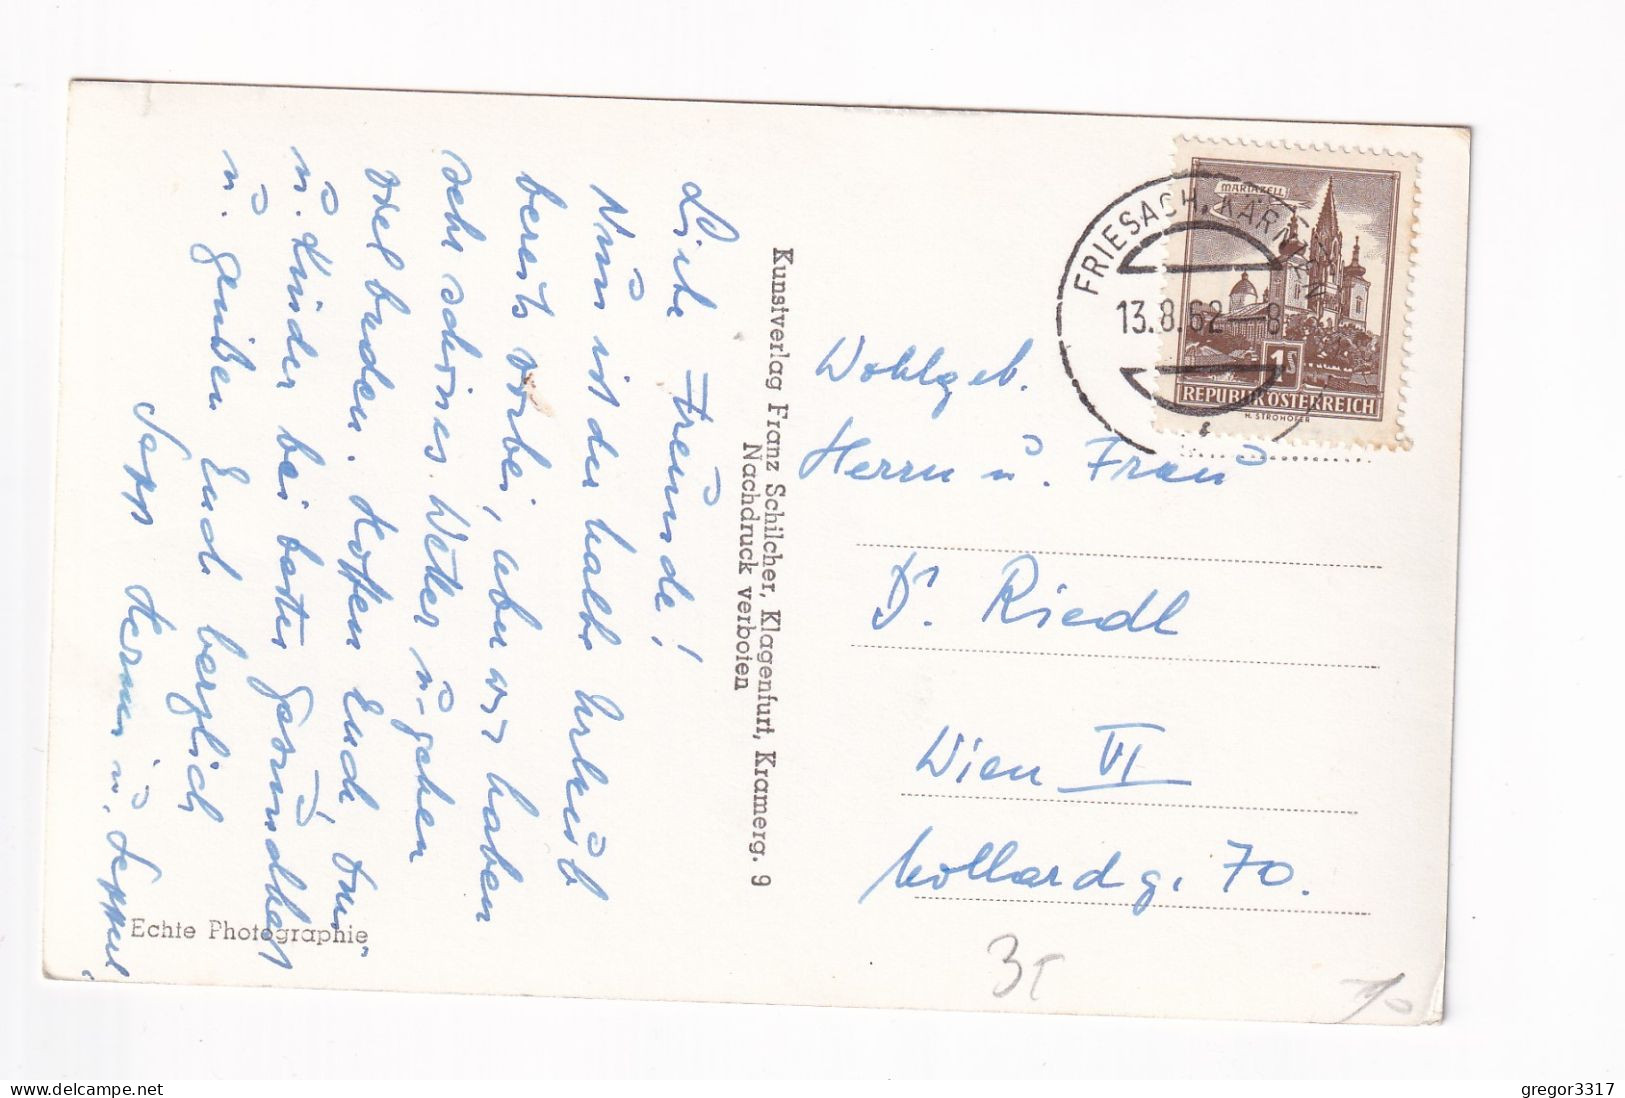 Liebe Freunde!
Nun ist der halbe Urlaub
bereits vorbei, aber wir haben
sehr schönes Wetter u. gehen
viel baden. Hoffen Euch, Fini
u. Kinder bei bester Gesundheit
u. grüßen Euch herzlich
Sepp Hermi u.
Echte Photographie
Kunstverlag Franz Schilcher, Klagenfurt, Kramerg. 9
Nachdruck verboten
MARIAZELL
1S
REPUBLIK ÖSTERREICH
H. STROHOFER
FRIESACH, KÄRNTEN
13.8.62—8
Wohlgeb.
Herrn u. Frau
Dr. Riedl
Wien VI
Mollardg. 70.
gregor3317